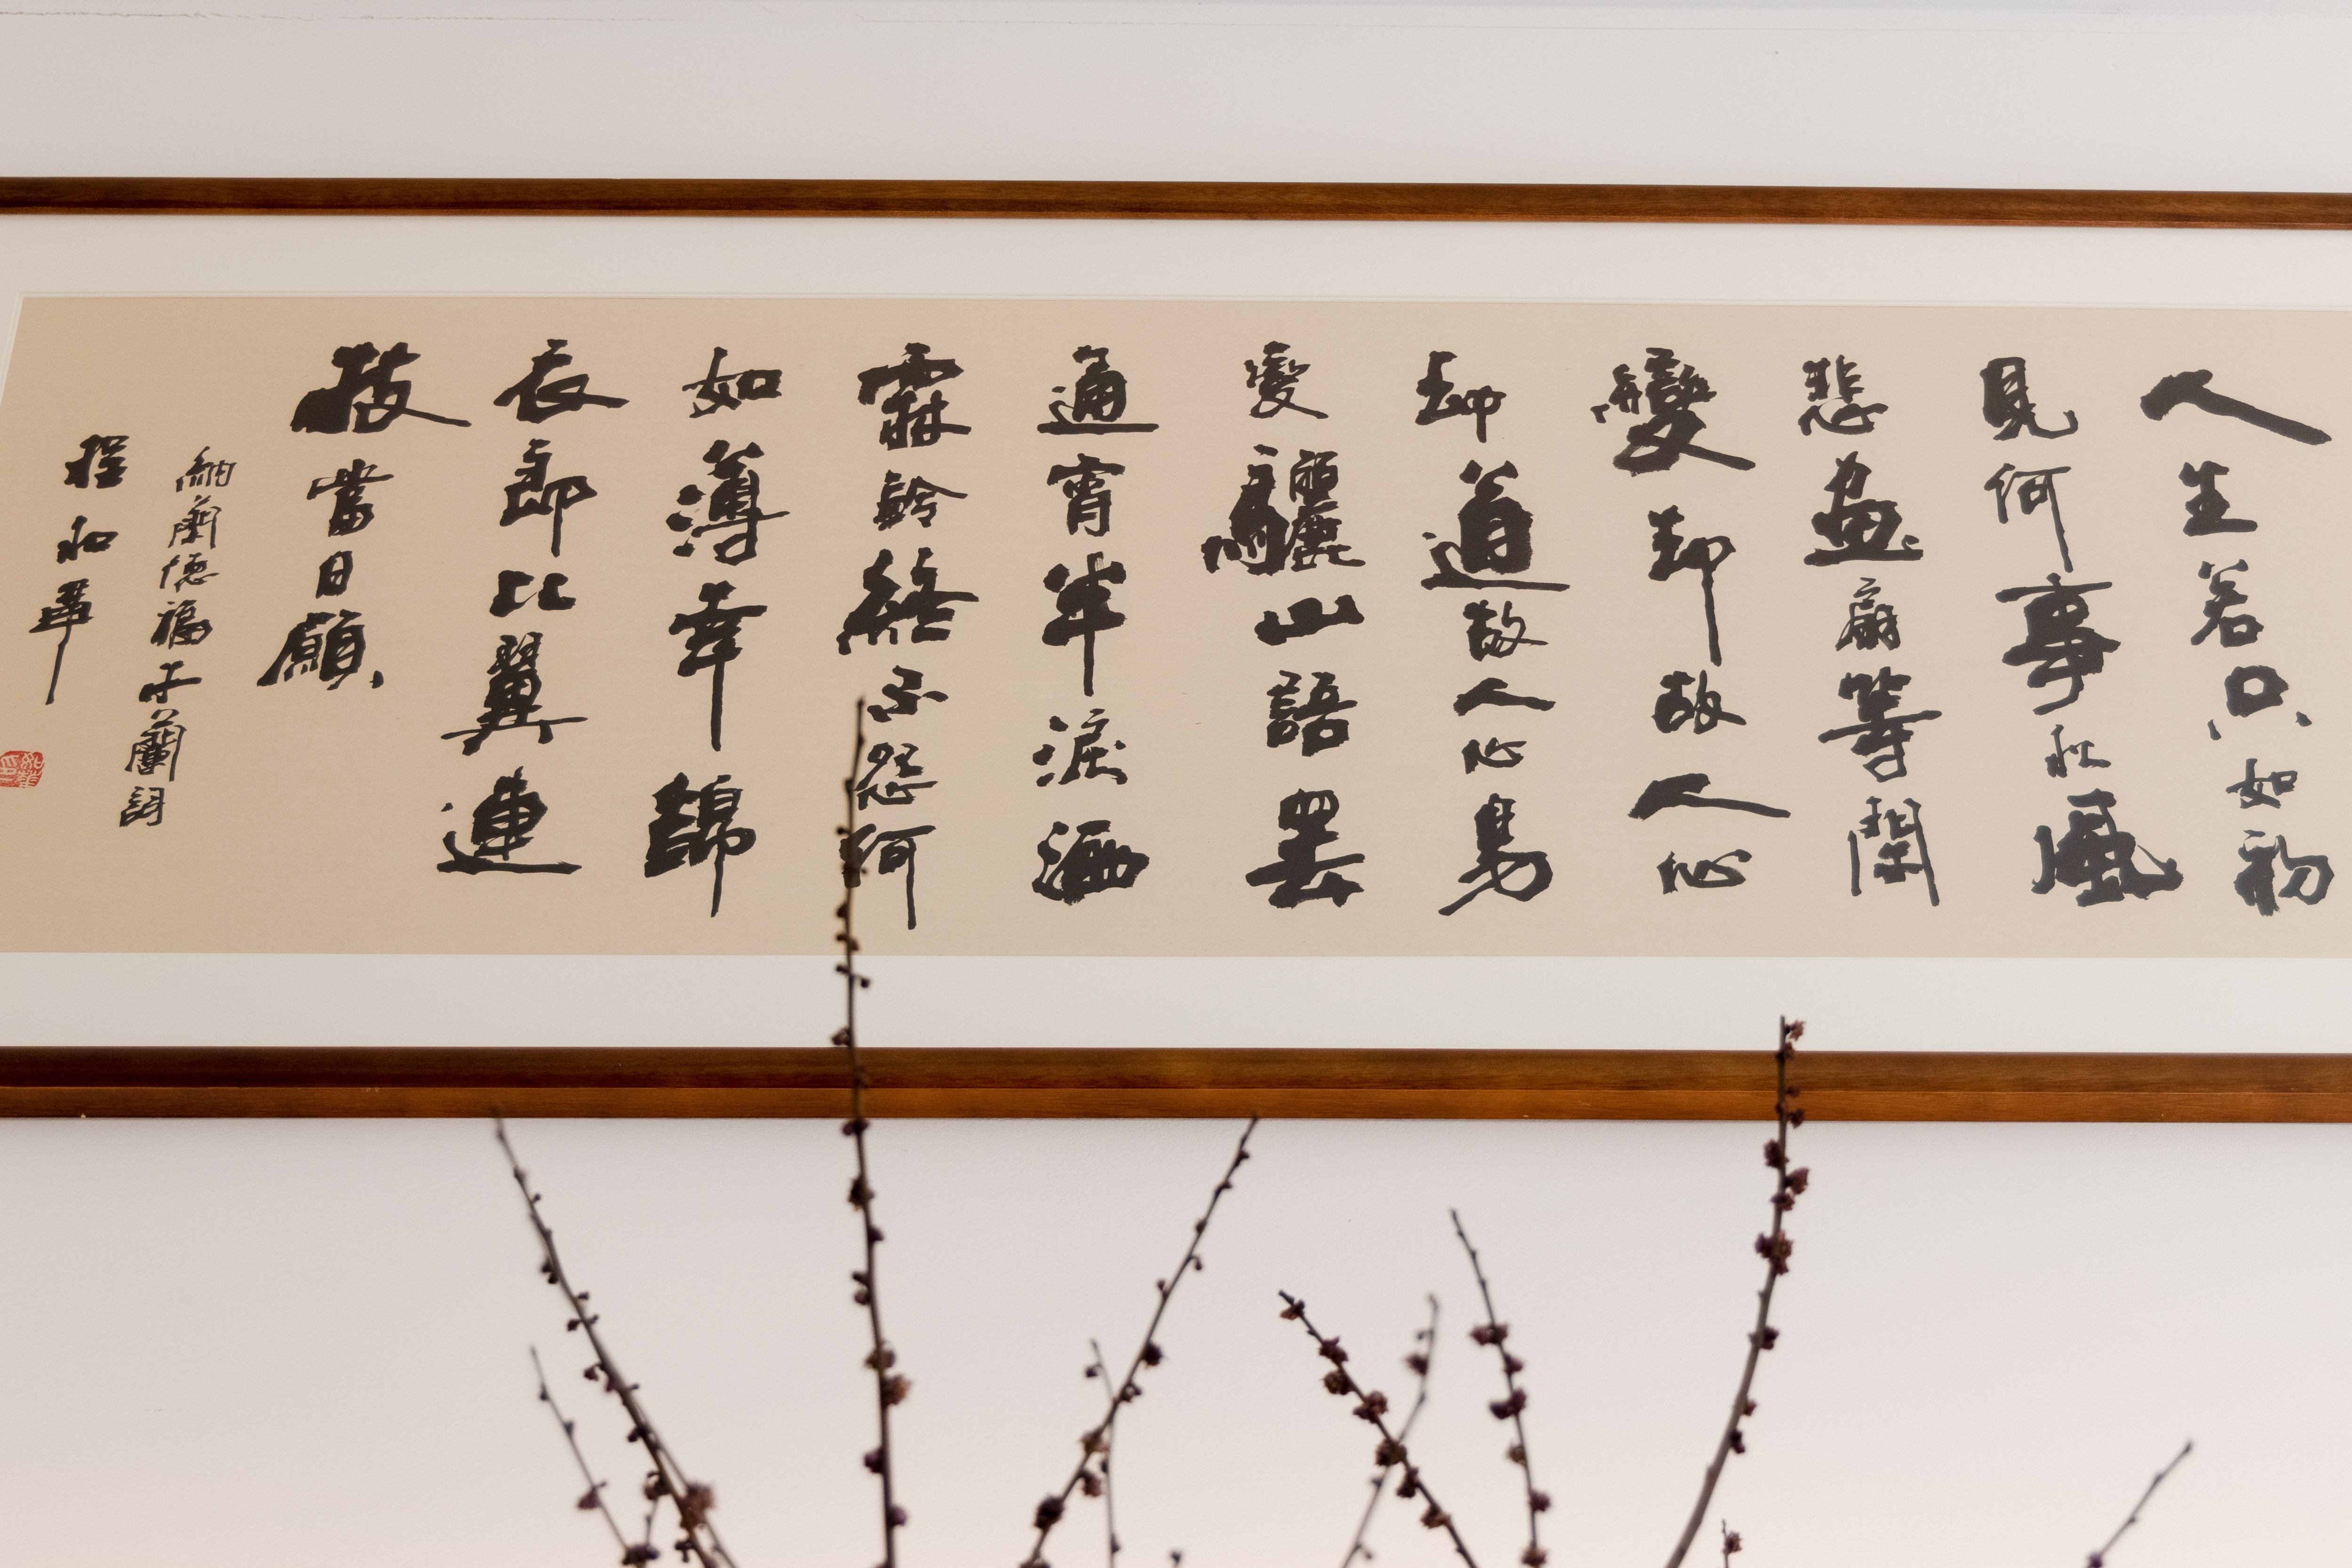 人生若只如初
見何事秋風
悲画扇等閑
變却故人心
却道故人心易
變驪山語罷
通宵半淚洒
霖鈴終不怨何
如薄幸錦
衣郎比翼連
枝當日願
納蘭德福木蘭詞
程和華